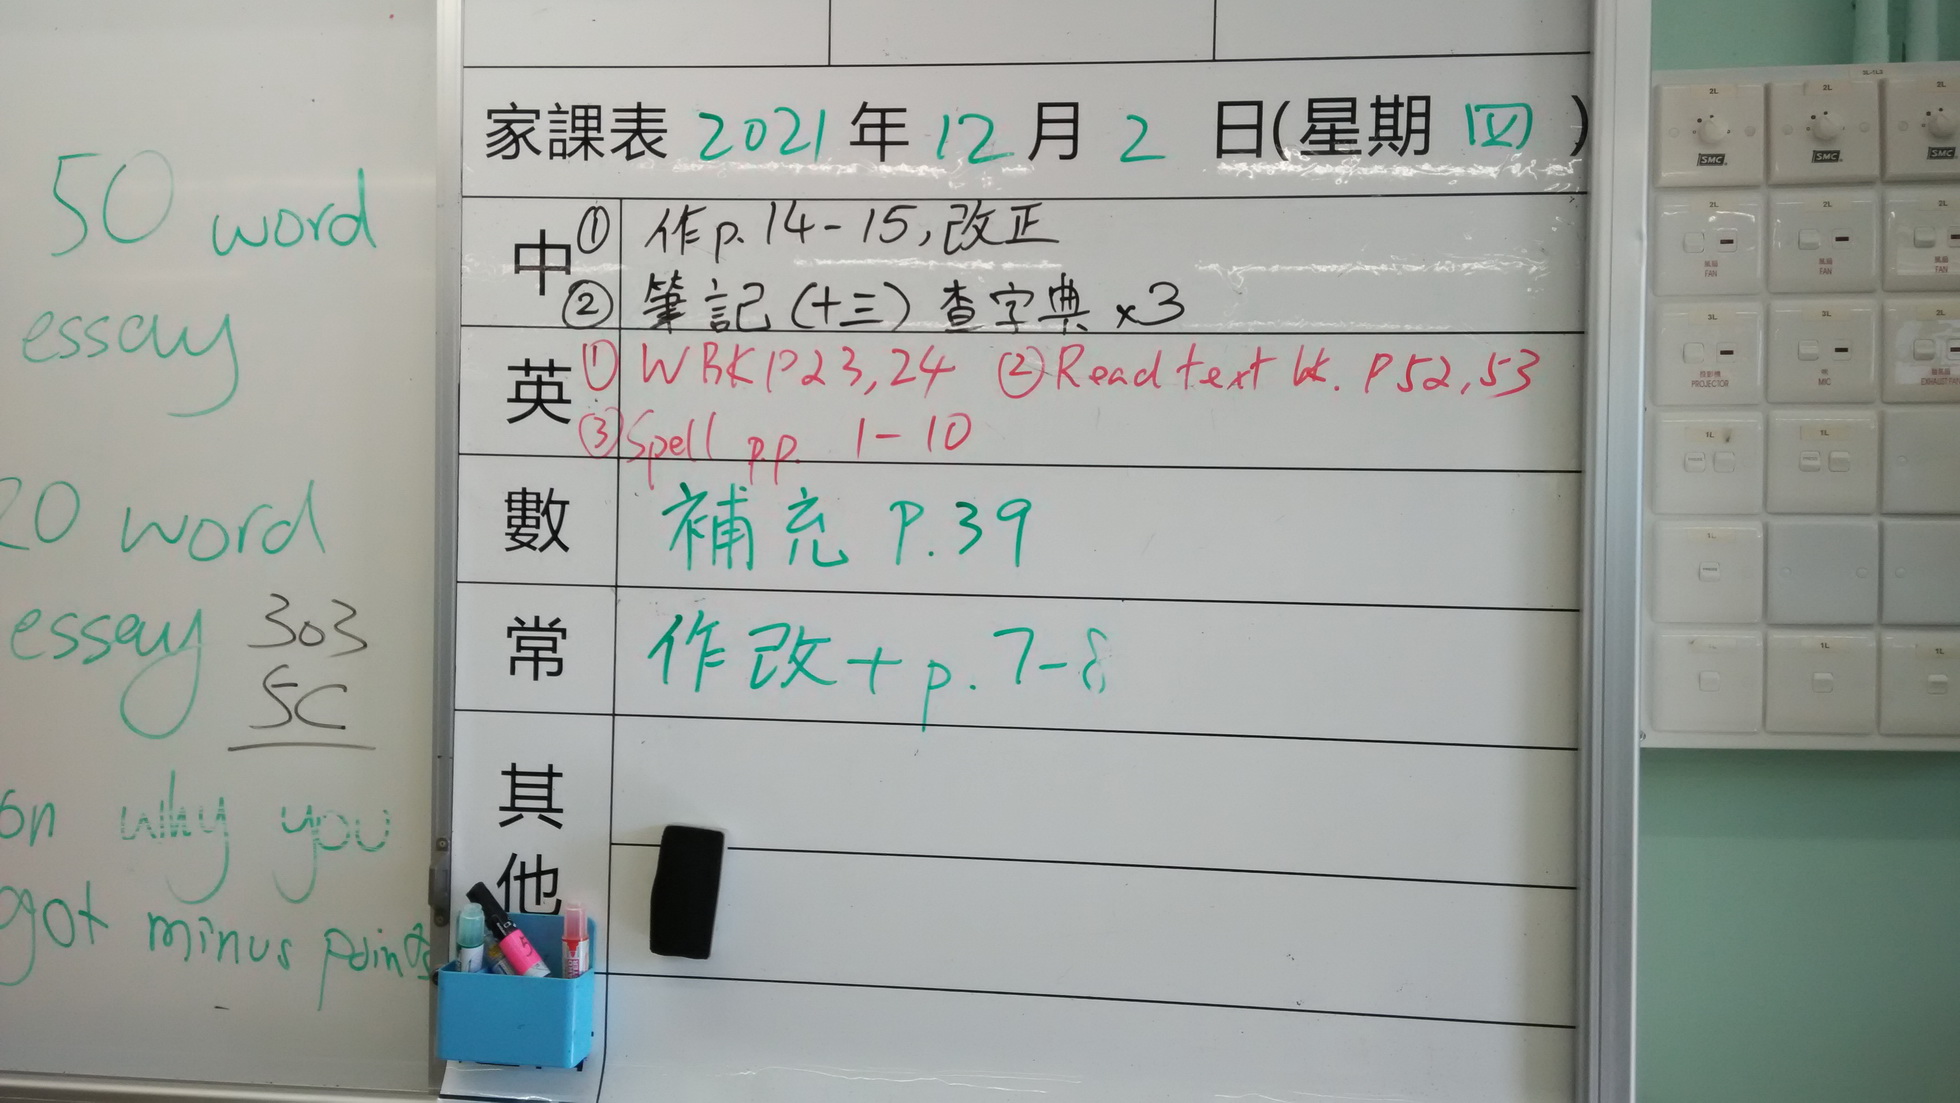 50 word
essay
20 word
essay 303
5C
on why you
got minus points
家課表 2021 年 12 月 2 日(星期 四 )
中 ① 作p.14-15,改正
② 筆記(十三)查字典 x3
英 ① WBK P23,24 ② Read text bk. P52,53
③ Spell pp. 1-10
數 補充 P.39
常 作改+p.7-8
其他
2L 2L 2L
SMC SMC SMC
2L 2L 2L
風扇 風扇 風扇
FAN FAN FAN
3L 3L 2L
投影機
PROJECTOR MIC EXHAUST FAN
1L 1L
1L
1L 1L